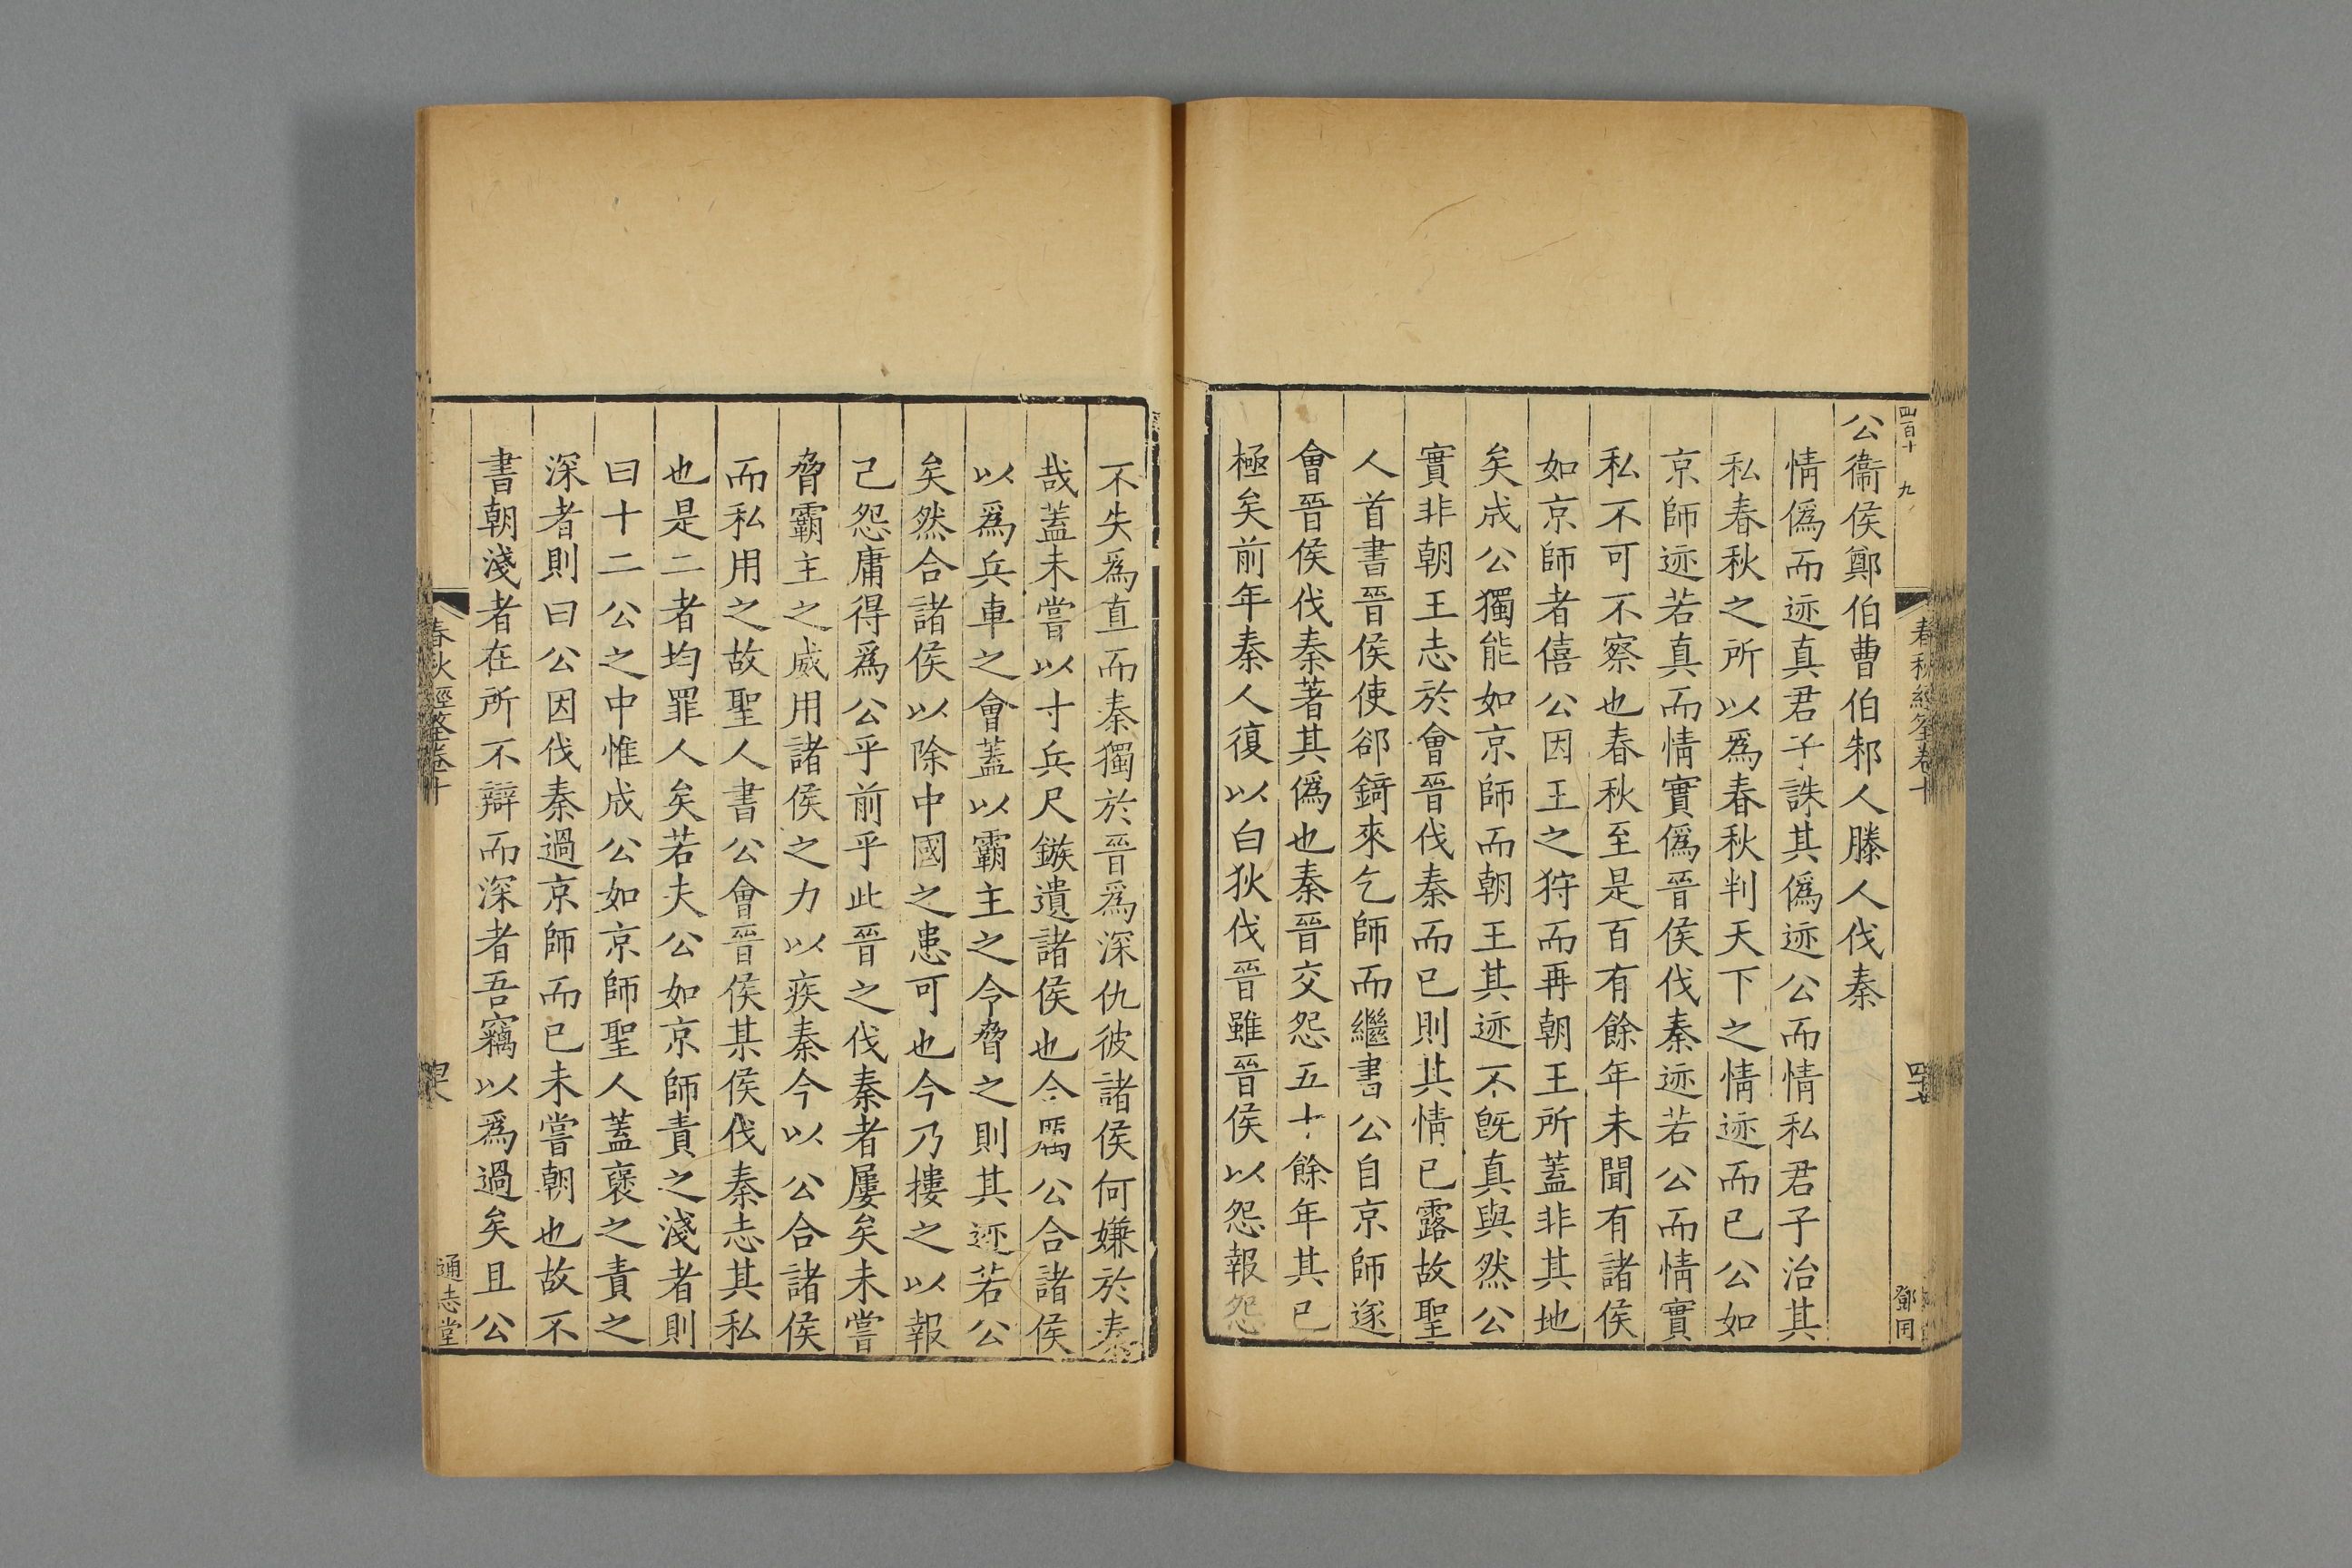 四百十九
春秋經筌卷十
鄧同
公衞侯鄭伯曹伯邾人滕人伐秦
情僞而迹真君子誅其僞迹公而情私君子治其
私春秋之所以爲春秋判天下之情迹而已公如
京師迹若真而情實僞晉侯伐秦迹若公而情實
私不可不察也春秋至是百有餘年未聞有諸侯
如京師者僖公因王之狩而再朝王所蓋非其地
矣成公獨能如京師而朝王其迹不旣真與然公
實非朝王志於會晉伐秦而已則其情已露故聖
人首書晉侯使郤錡來乞師而繼書公自京師遂
會晉侯伐秦著其僞也秦晉交怨五十餘年其已
極矣前年秦人復以白狄伐晉雖晉侯以怨報怨
不失爲直而秦獨於晉爲深仇彼諸侯何嫌於秦
哉蓋未嘗以寸兵尺鏃遺諸侯也今厲公合諸侯
以爲兵車之會蓋以霸主之令脅之則其迹若公
矣然合諸侯以除中國之患可也今乃摟之以報
己怨庸得爲公乎前乎此晉之伐秦者屢矣未嘗
脅霸主之威用諸侯之力以疾秦今以公合諸侯
而私用之故聖人書公會晉侯某侯伐秦志其私
也是二者均罪人矣若夫公如京師責之淺者則
曰十二公之中惟成公如京師聖人蓋襃之責之
深者則曰公因伐秦過京師而已未嘗朝也故不
書朝淺者在所不辯而深者吾竊以爲過矣且公
春秋經筌卷十
通志堂